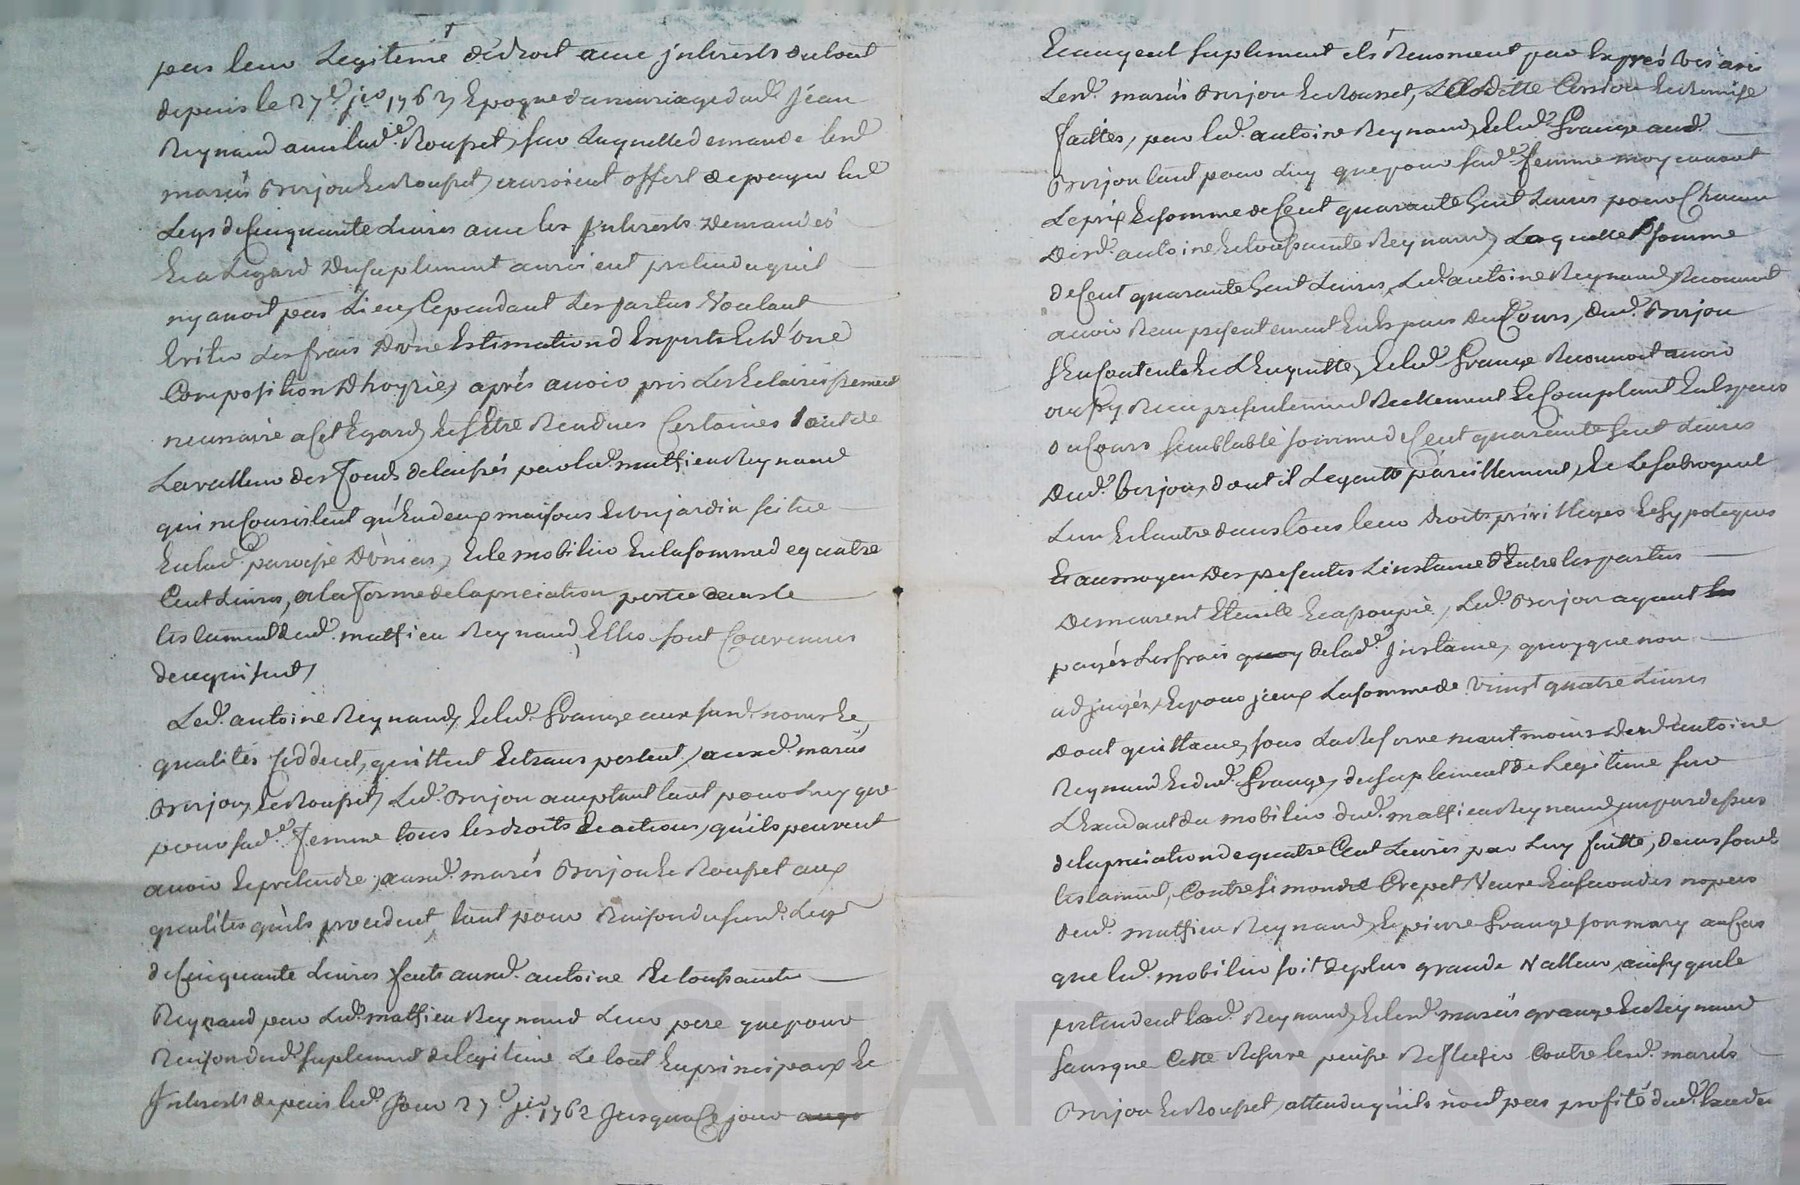 pas leur Legitime de droit avec jnterests du tout
depuis le 27e. jer. 1762, Epoque du mariage dud. Jean
Reynaud avec lad. Rouset, sur Laquelle demande lesd
mariés Brijon et Rouset, auroient offert de payer led
Legs de Cinquante Livres avec les jnterests Demandés
Et a L'egard du suplement auroient pretendu quil
ny avoit pas Lieu, Cependant Les parties Voulant
Eviter Les frais D'une Estimation d'Experts Et d'une
Composition D'hoyrie, aprés avoir pris Les Eclaircissements
necessaire a Cet Egard, et s'Etre Rendues Certaines tant de
La valleur des fonds delaissés par led. mathieu Reynaud
qui ne Consistent qu'En deux maisons et un jardin scitué
En lad. paroisse D'onieu, et le mobilier En la somme de quatre
Cent Livres, a la forme de la preciation portée dans le
testament dud. mathieu Reynaud, Elles sont Convenues
de ce qui suit,
Led. antoine Reynaud, et led. Grange aux susd. noms Et
qualités Ceddent, quittent Et transportent, auxd. mariés
Brijon, et Rouset, Led. Brijon acceptant tant pour Luy que
pour sad. femme tous les droits et actions, qu'ils peuvent
avoir et pretendre, auxd. mariés Brijon et Rouset aux
qualités qu'ils procedent, tant pour Raison du susd. Legs
de Cinquante Livres faits auxd. antoine Et toussainte
Reynaud par Led. mathieu Reynaud Leur pere que pour
Raison dud. suplement de Legitime Le tout En principaux Et
jnterests depuis led. jour 27e. jer. 1762 jusqua Ce jour
Et au, quel suplement ils Renoncent par Exprés vis avis
Lesd. mariés Brijon et Rouset, Lad. Ditte Cession et Remise
faittes, par led. antoine Reynaud, et led. Grange aud.
Brijon tant pour Luy que pour sad. femme moyennant
Le prix Et somme de Cent quarante huit Livres pour Chacun
Desd. antoine, et toussainte Reynaud, Laquelle somme
de Cent quarante huit Livres, Led. antoine Reynaud Reconnoit
avoir Reçu presentement En Especes du Cours, dud. Brijon
s'En Contente Et L'En quitte, et led. Grange Reconnoit avoir
aussy Reçu presentement Reellement Et Comptant En Especes
du Cours semblable somme de Cent quarante huit Livres
Dud. Brijon, dont il Le quitte pareillement, Et Le subrogent
L'un Et L'autre dans tous leur droits privilleges Et hypoteques
Et au moyen Des presentes L'instance d'Entre les parties
Demeurent Eteinte Et assoupie, Led. Brijon ayant
payés Les frais de lad. Instance, quoyque non
adjugés, Et pour jceux La somme de Vingt quatre Livres
Dont quittance, sous La Reserve neantmoins desd. antoine
Reynaud Et dud. Grange, du suplement de Legitime sur
L'Excedant du mobilier dud. mathieu Reynaud, au par dessus
de la preciation de quatre Cent Livres par Luy faitte, dans sond.
testament, Contre simonde Crepet Veuve En secondes nopces
dud. mathieu Reynaud, Et pierre Grange son mary au Cas
que led. mobilier soit de plus grande Valleur, ainsy que le
pretendent led. Reynaud, et lesd. mariés grange Et Reynaud
sans que Cette Reserve puisse Refluer Contre lesd. mariés
Brijon et Rouset, attendu qu'ils n'ont pas profité dud.